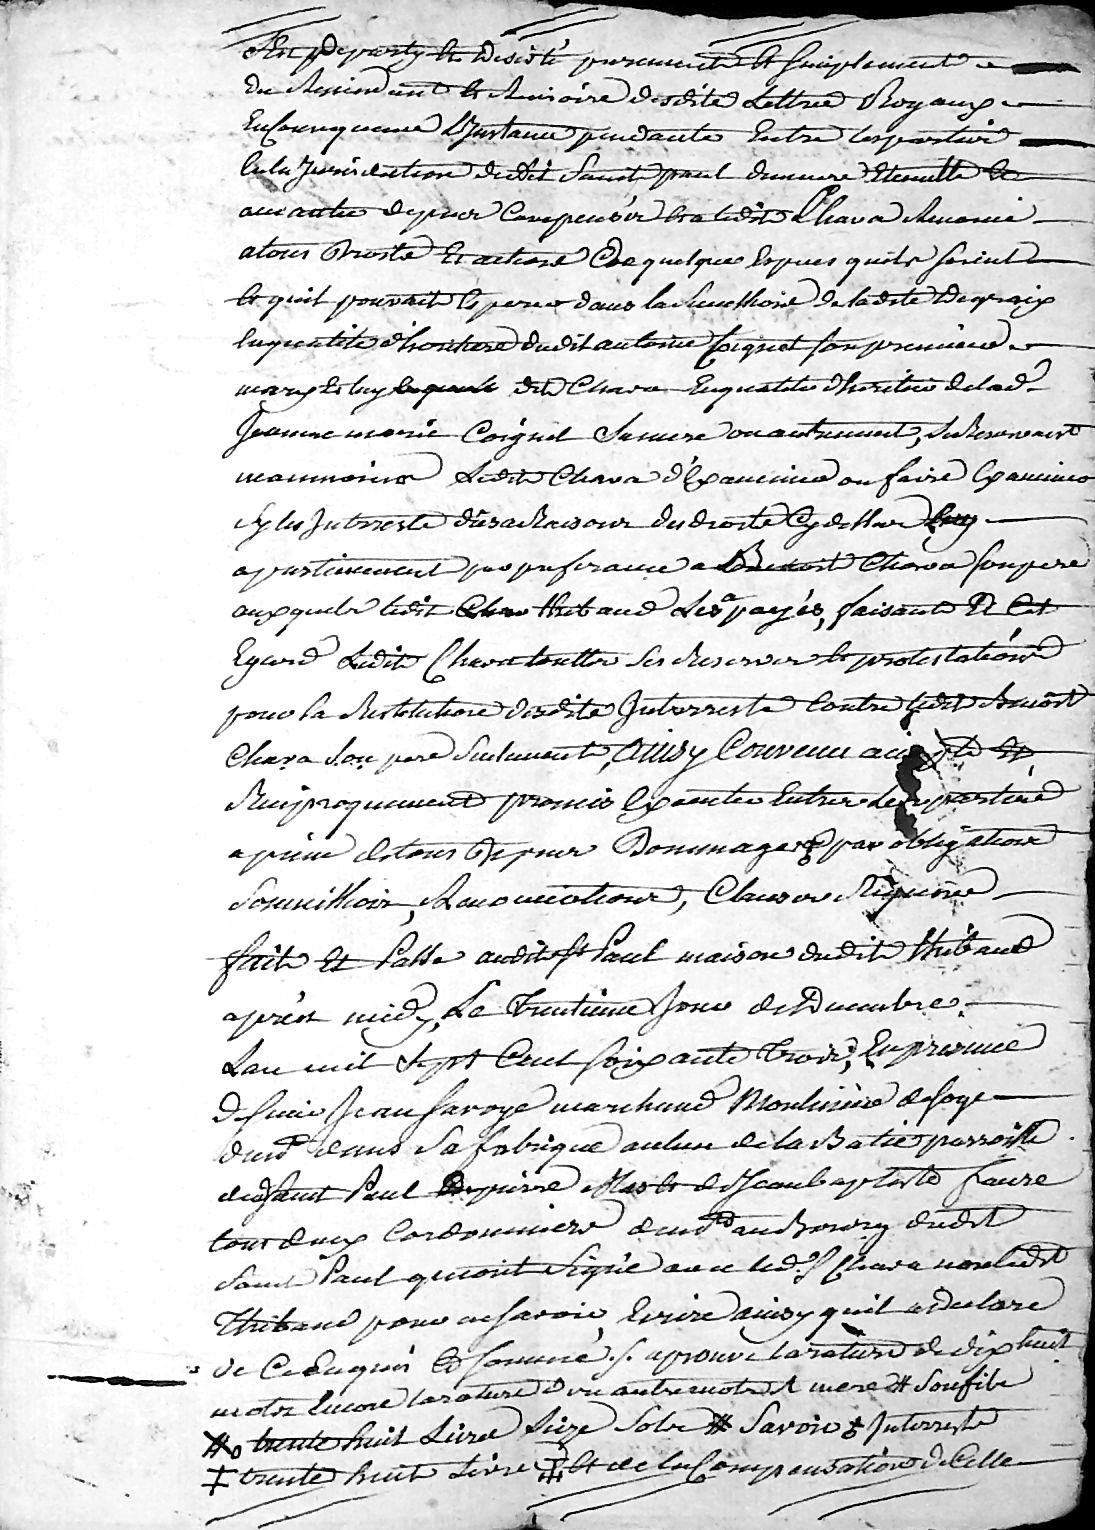 sest departy et desisté purement et simplement
du Rescindant et Rescisoire desdites Lettres Royaux
En Consequence L'Instance pendante Entre les parties
En la Jurisdiction dudit Saint paul demeure Eteinte et
aneantie depens Compensés Et a ledit Chava Renoncé
atous Droits Et actions De quelque Espece quils soient
Et quil pouvoit Esperer dans la succession de ladite Degraix
En qualité d'heritiere dudit antoine Coignet son premier
mary Et luy dit Chava En qualité d'heritier de lad.
Jeanne marie Coignet sa mere ou autrement, se Reservant
neanmoins Ledit Chava d'Examiner ou faire Examiner
sy les Interrests des droits Cy dessus
apartiennent par preferance a Benoist Chava son pere
auxquels ledit Thibaud Les a payés, faisant a Cet
Egard Ledit Chava touttes ses Reserves et protestations
pour la Restitution desdits Interrests Contre ledit Benoist
Chava son pere seulement, Ainsy Convenu accepté et
Reciproquement promis Executer Entre les parties
a peine de tous Depens Dommages par obligations
soumissions, Renonciations, Clauses Requises
fait Et Passé audit St Paul maison dudit Thibaud
aprés midy, Le Trentieme Jour de Decembre
L'an mil sept Cent soixante trois, En presence
de sieur Jean Savoye marchand Moulinier de soye
demt dans sa fabrique au lieu de la Batie parroisse
dud Saint Paul de pierre et de Jean baptiste faure
tous deux Cordonniers demts au Bourg dudit
Saint Paul qui ont signé avec led. Sr Chava non ledit
Thibaud pour ne savoir Ecrire ainsy quil a declaré
de Ce Enquis et sommé ./. aprouvé la rature de dix huit
mots Encore la rature d'un autre mot # mere # son fils
# trente huit Livres seize sols # Savoir ‡ Interrests
‡ trente huit Livres ‡ Et de la Compensation de Celle